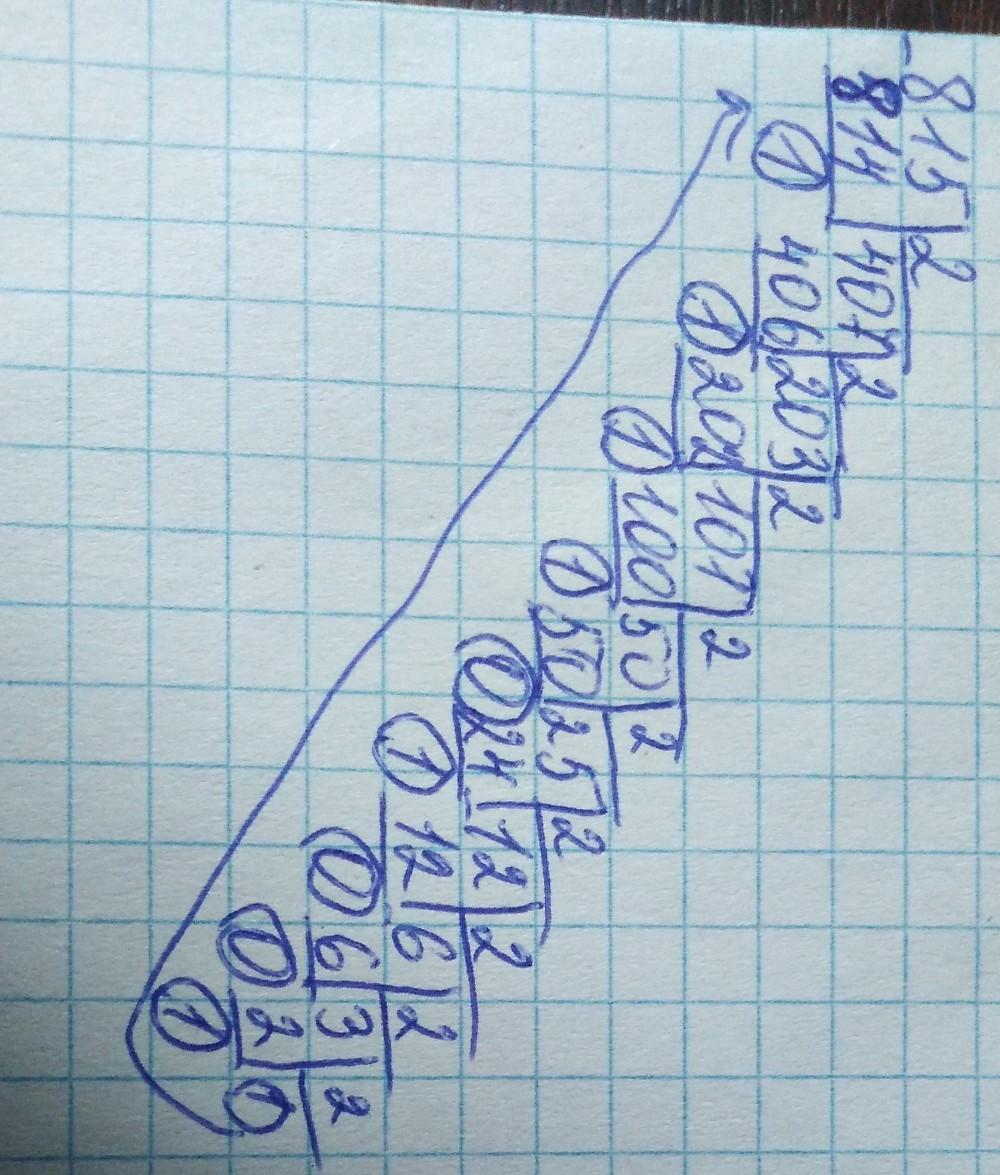 -815 | 2
814 | 407 | 2
1 406 | 203 | 2
1 202 | 101 | 2
1 100 | 50 | 2
1 50 | 25 | 2
0 24 | 12 | 2
1 12 | 6 | 2
0 6 | 3 | 2
0 2 | 1
1